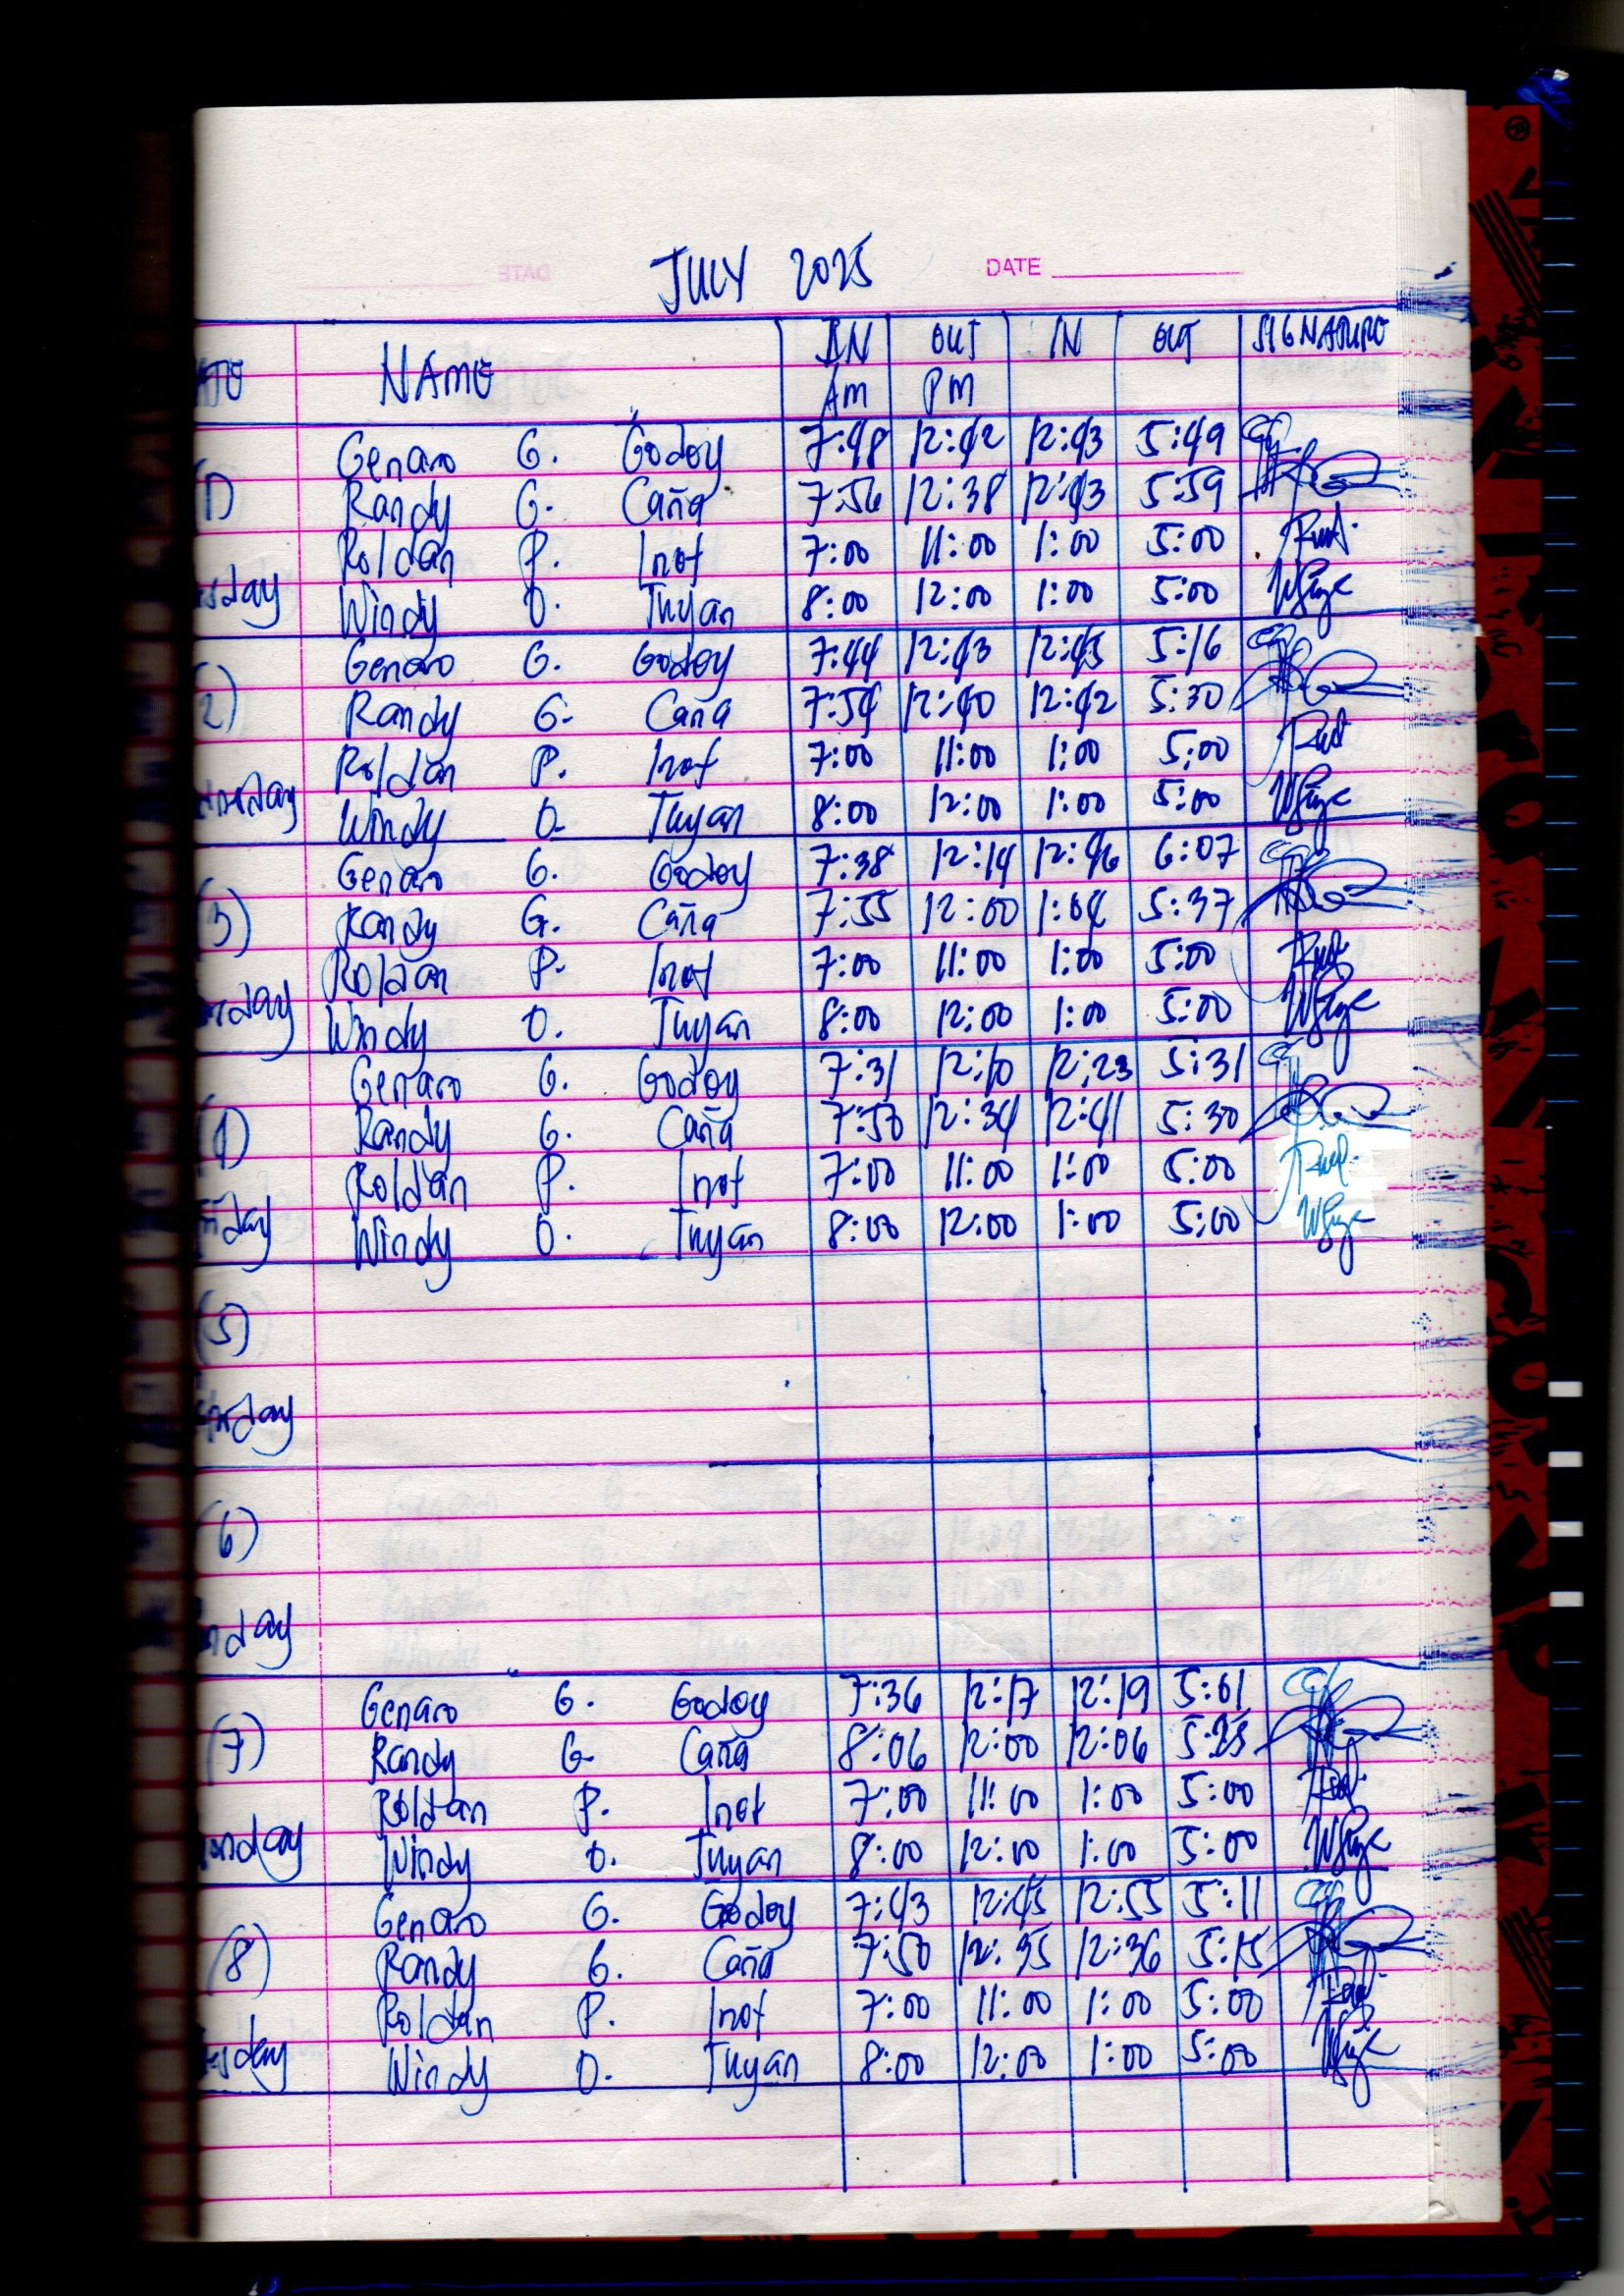 JULY 2025 DATE
NAME IN OUT IN OUT SIGNATURE
AM PM
Genaro G. Godoy 7:48 12:42 12:43 5:49
(1) Randy G. Caña 7:56 12:38 12:43 5:59
Roldan P. Inot 7:00 11:00 1:00 5:00
sday Windy O. Tuyan 8:00 12:00 1:00 5:00
Genaro G. Godoy 7:44 12:43 12:45 5:16
2) Randy G. Caña 7:54 12:40 12:42 5:30
Roldan P. Inot 7:00 11:00 1:00 5:00
nesday Windy O. Tuyan 8:00 12:00 1:00 5:00
Genaro G. Godoy 7:38 12:14 12:46 6:07
3) Randy G. Caña 7:55 12:00 1:04 5:37
Roldan P. Inot 7:00 11:00 1:00 5:00
rsday Windy O. Tuyan 8:00 12:00 1:00 5:00
Genaro G. Godoy 7:31 12:10 12:23 5:31
4) Randy G. Caña 7:50 12:34 12:41 5:30
Roldan P. Inot 7:00 11:00 1:00 5:00
iday Windy O. Tuyan 8:00 12:00 1:00 5:00
(5)
urday
(6)
nday
Genaro G. Godoy 7:36 12:17 12:19 5:01
(7) Randy G Caña 8:06 12:00 12:06 5:25
Roldan P. Inot 7:00 11:00 1:00 5:00
onday Windy O. Tuyan 8:00 12:00 1:00 5:00
Genaro G. Godoy 7:43 12:45 12:55 5:11
(8) Randy G. Caña 7:50 12:35 12:36 5:15
Roldan P. Inot 7:00 11:00 1:00 5:00
esday Windy O. Tuyan 8:00 12:00 1:00 5:00